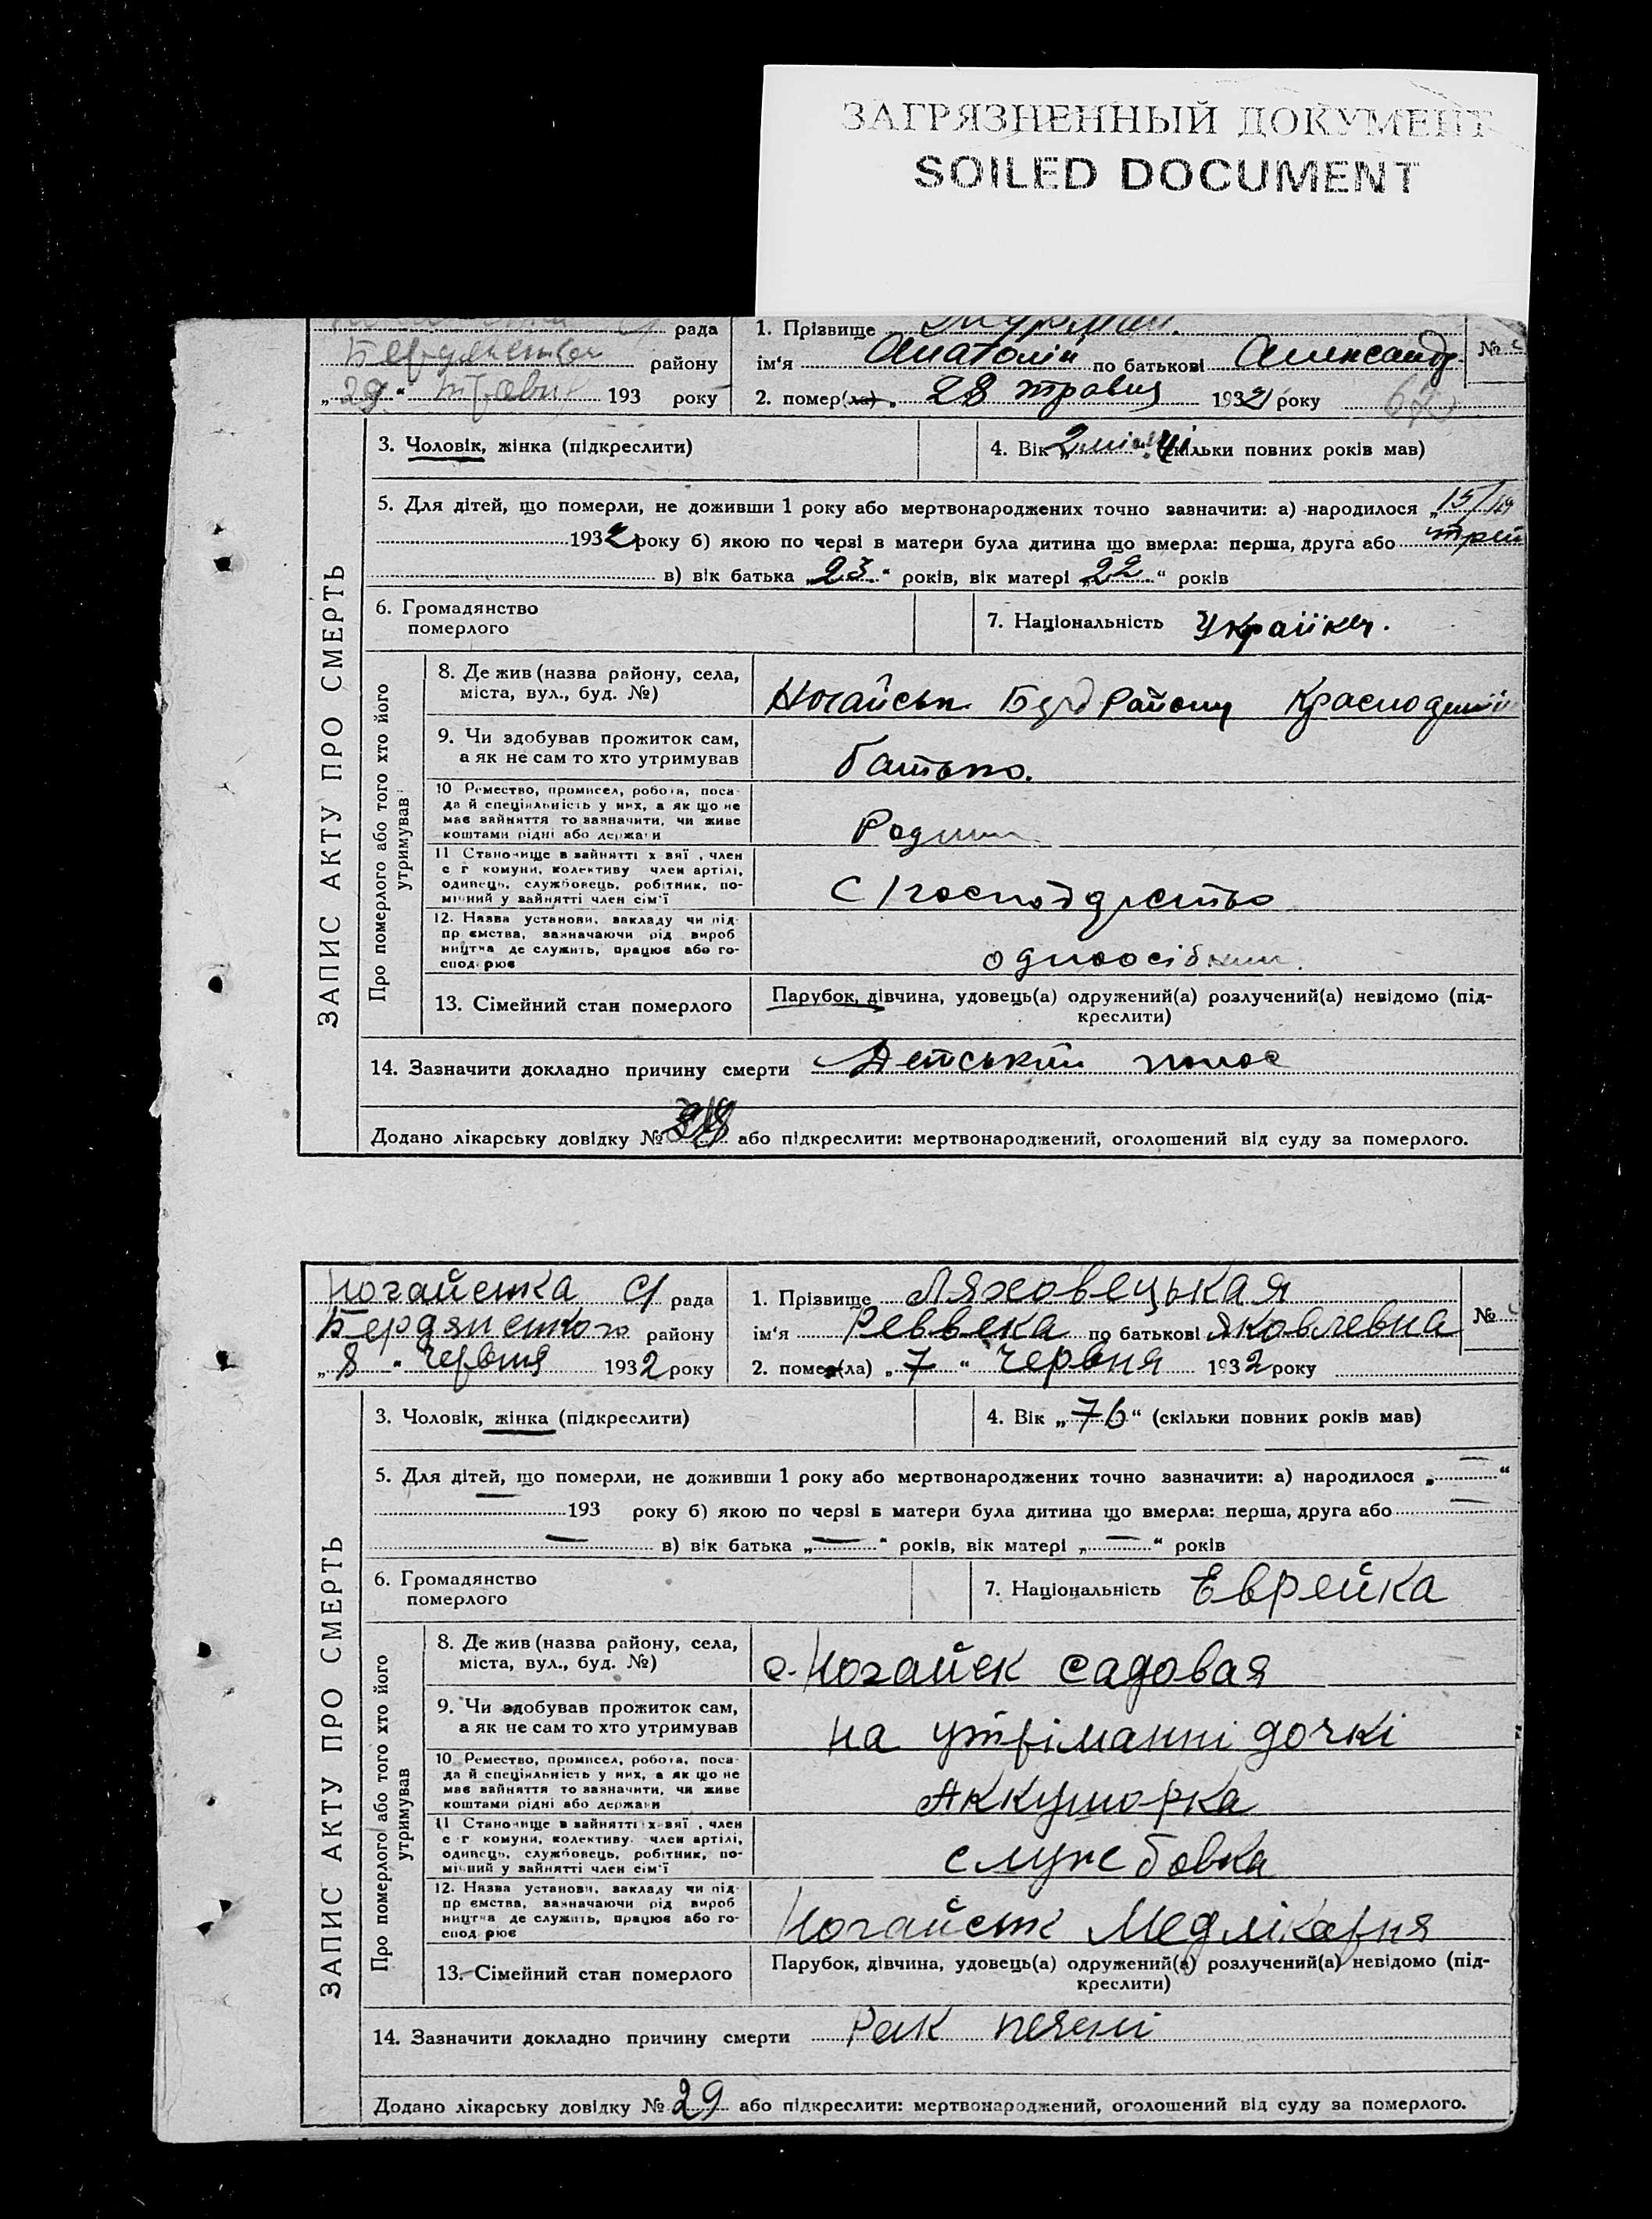 ЗАГРЯЗНЕННЫЙ ДОКУМЕНТ
SOILED DOCUMENT
рада
1. Прізвище
№
району
ім'я Анатолій по батькові Александр.
„29“ травн 193 року
2. помер(ла) „28 травня 1932 року
ЗАПИС АКТУ ПРО СМЕРТЬ
3. Чоловік, жінка (підкреслити)
4. Вік „2 (скільки повних років мав)
5. Для дітей, що померли, не доживши 1 року або мертвонароджених точно зазначити: а) народилося „15/
1932 року б) якою по черзі в матери була дитина що вмерла: перша, друга або
в) вік батька „23“ років, вік матері „22“ років
6. Громадянство
померлого
7. Національність
Про померлого або того хто його
утримував
8. Де жив (назва району, села,
міста, вул., буд. №)
Ногайськ Берд Району
9. Чи здобував прожиток сам,
а як не сам то хто утримував
батько.
10 Ремество, промисел, робота, поса-
да й спеціяльність у них, а як що не
має зайняття то зазначити, чи живе
коштами рідні або держави
11 Становище в зайнятті х вяї , член
с г комуни, колективу член артілі,
одинець, службовець, робітник, по-
мічний у зайнятті член сім'ї
С/господарство
12. Назва установи, закладу чи під-
пр ємства, зазначаючи рід вироб
ництва де служить, працює або го-
спод рює
13. Сімейний стан померлого
Парубок, дівчина, удовець(а) одружений(а) розлучений(а) невідомо (під-
креслити)
14. Зазначити докладно причину смерти Детський понос
Додано лікарську довідку № або підкреслити: мертвонароджений, оголошений від суду за померлого.
Ногайська С/ рада
1. Прізвище Ляховецькая
№
Бердянського району
ім'я Реввека по батькові Яковлевна
„8“ Червня 1932 року
2. помер(ла) „7“ Червня 1932 року
ЗАПИС АКТУ ПРО СМЕРТЬ
3. Чоловік, жінка (підкреслити)
4. Вік „76“ (скільки повних років мав)
5. Для дітей, що померли, не доживши 1 року або мертвонароджених точно зазначити: а) народилося „—“
193 року б) якою по черзі в матери була дитина що вмерла: перша, друга або —
— в) вік батька „—“ років, вік матері „—“ років
6. Громадянство
померлого
7. Національність Еврейка
Про померлого або того хто його
утримував
8. Де жив (назва району, села,
міста, вул., буд. №)
с. Ногайск садовая
9. Чи здобував прожиток сам,
а як не сам то хто утримував
на утріманні дочкі
10 Ремество, промисел, робота, поса-
да й спеціяльність у них, а як що не
має зайняття то зазначити, чи живе
коштами рідні або держави
Аккушорка
11 Становище в зайнятті х вяї , член
с г комуни, колективу член артілі,
одинець, службовець, робітник, по-
мічний у зайнятті член сім'ї
службовка
12. Назва установи, закладу чи під-
пр ємства, зазначаючи рід вироб
ництва де служить, працює або го-
спод рює
Ногайськ Медлікарня
13. Сімейний стан померлого
Парубок, дівчина, удовець(а) одружений(а) розлучений(а) невідомо (під-
креслити)
14. Зазначити докладно причину смерти Рак печені
Додано лікарську довідку № 29 або підкреслити: мертвонароджений, оголошений від суду за померлого.